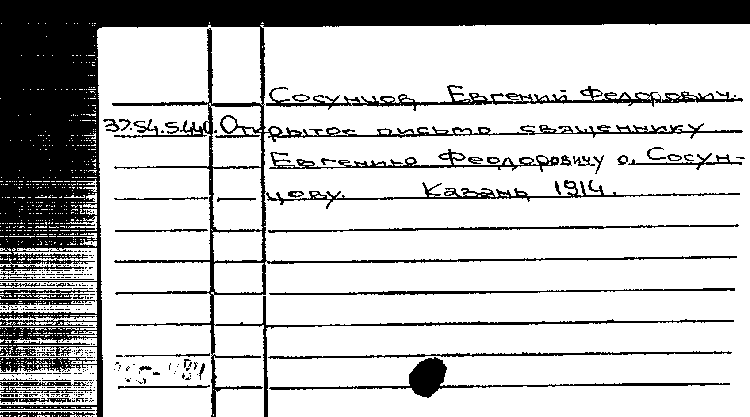 Сосунцов Евгений Федорович.
37.54.5.440. Открытое письмо священнику
Евгению Феодоровичу о. Сосун-
цову. Казань 1914.